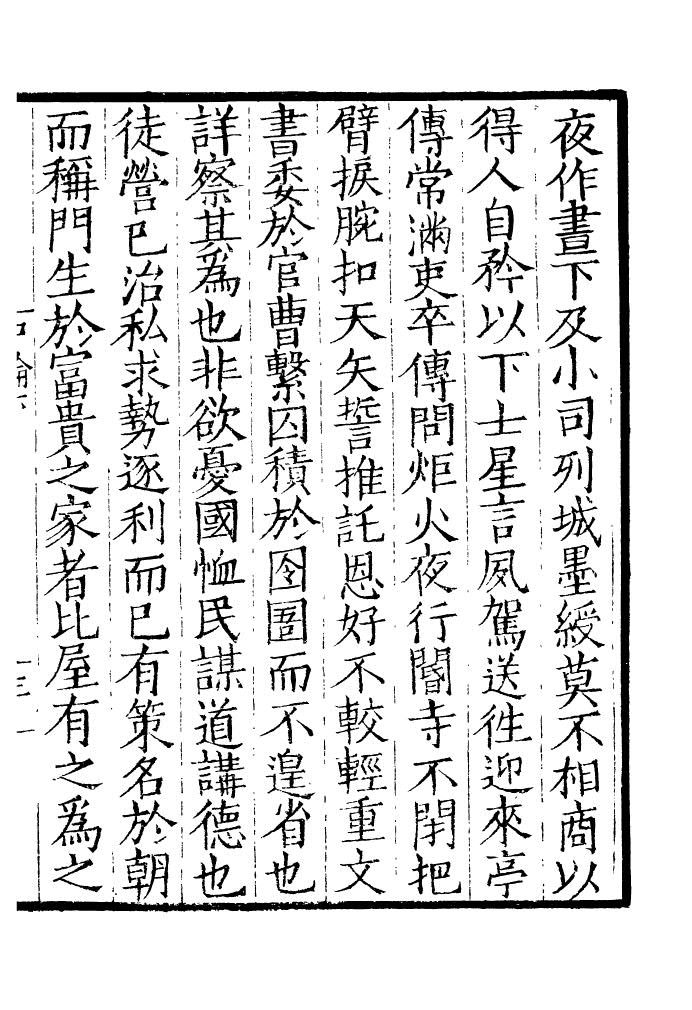 夜作晝下及小司列城墨綬莫不相商以
得人自矜以下士星言夙駕送徃迎來亭
傳常滿吏卒傳問炬火夜行閽寺不閉把
臂捩腕扣天矢誓推託恩好不較輕重文
書委於官曹繫囚積於囹圄而不遑省也
詳察其為也非欲憂國恤民謀道講德也
徒營已治私求勢逐利而已有策名於朝
而稱門生於富貴之家者比屋有之為之
中論下
三